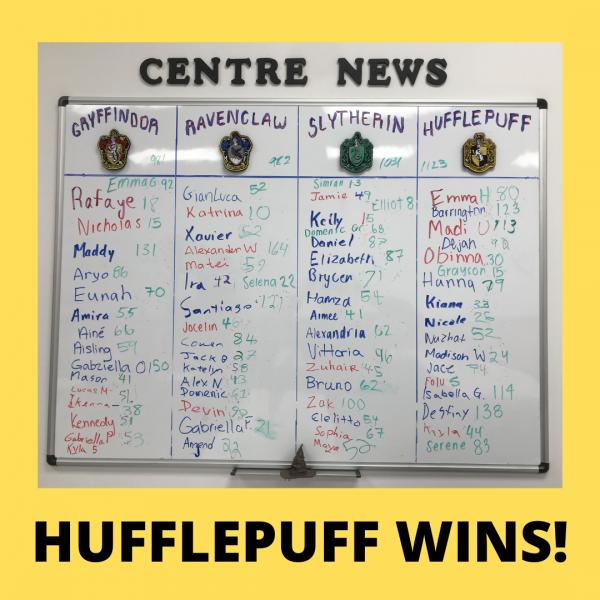 CENTRE NEWS
GRYFFINDOR
981
EmmaG 92
Rafaye 18
Nicholas 15
Maddy 131
Aryo 86
Eunah 70
Amira 55
Ainé 66
Aisling 59
Gabziella O 150
Mason 41
Lucas M.
Ikenna 38
Kennedy 51
Gabriella P 53
Kyla 5
RAVENCLAW
982
GianLuca 52
Katrina 10
Xavier 52
Alexander W 164
Matei 59
Ira 12 Selena 22
Santiago 121
Jocelin
Cowen 84
Jack B 27
Katelyn 58
Alex N 93
Domenic
Devin
Gabriella F. 21
Angend 22
SLYTHERIN
1031
Simran 13
Jamie 49
Elliot 8
Keily 15
Domenic G. 68
Daniel 87
Elizabeth 87
Brycen 71
Hamza 54
Aimee 41
Alexandria 62
Vittoria 96
Zuhair 45
Bruno 62
Zak 100
Clelitto 54
Sophia 67
Maya 50
HUFFLEPUFF
1123
Emma H 80
Barrington 123
Madi U 113
Dejah
Obinna 30
Grayson 15
Hanna 79
Kiana 33
Nicole 25
Nuzhat 52
Madison W 24
Jace 74
Folu 5
Isabella G. 114
Destiny 138
Kayla 44
Serene 83
HUFFLEPUFF WINS!